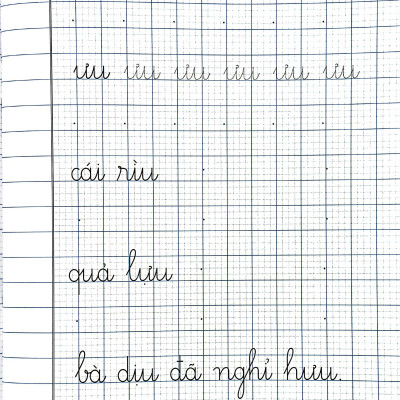 ưu ưu ưu ưu ưu ưu
cái rìu
quả lựu
bà dịu đã nghỉ hưu.